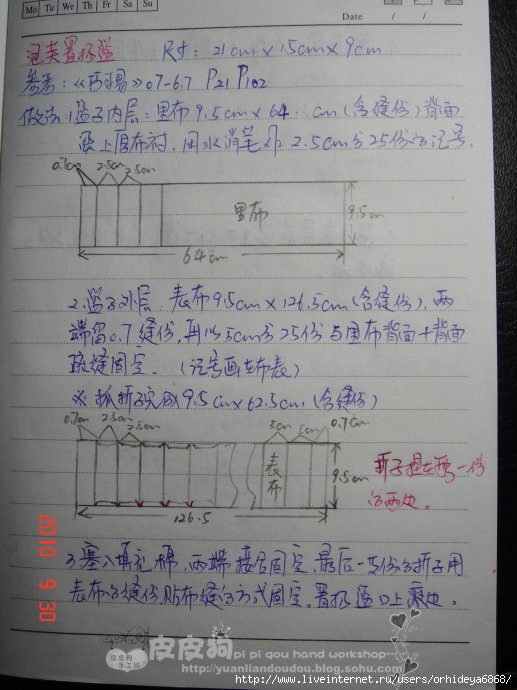 Mo Tu We Th Fri Sa Su
Date / /
置物篮 尺寸: 21cm×15cm×9cm
参考:《巧易》07-6.7 P21 P102
做法: 1.篮子内层: 里布9.5cm×64.cm(含缝份)背面
烫上厚布衬, 用水消笔 2.5cm分25份的记号.
0.7cm 2.5cm 2.5cm
里布
9.5cm
64cm
2.篮子外层: 表布9.5cm×126.5cm(含缝份), 两
端留0.7缝份, 再以5cm分25份与里布背面+背面
疏缝固定. (记号画在布表)
※ 抓折子完成9.5cm×62.5cm(含缝份)
0.7cm 2.5cm 2.5cm 5cm 5cm 0.7cm
表布
9.5cm
126.5
折子捏在每一份
的两边.
3.塞入填充棉, 两端接合固定. 最后一份的折子用
表布的缝份, 贴布缝的方式固定. 置物篮口上滚边.
2010 9 30
皮皮狗
手工坊
皮皮狗 pi pi gou hand workshop
http://yuanliandoudou.blog.sohu.com
http://www.liveinternet.ru/users/orhideya6868/